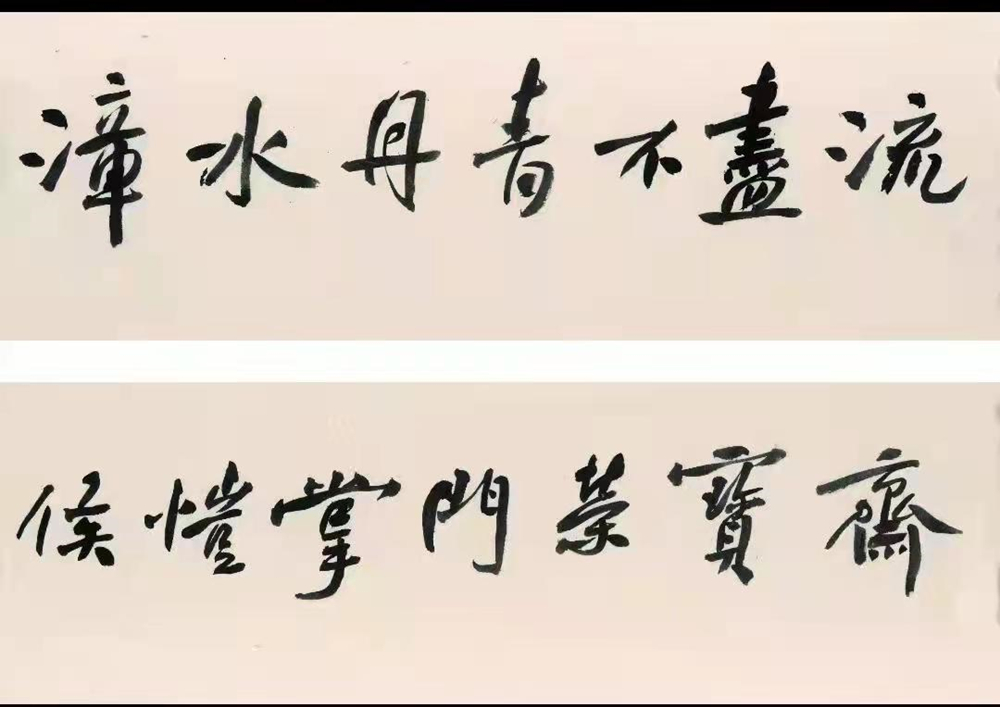 漳水丹青不盡流
侯愷掌門榮寶齋